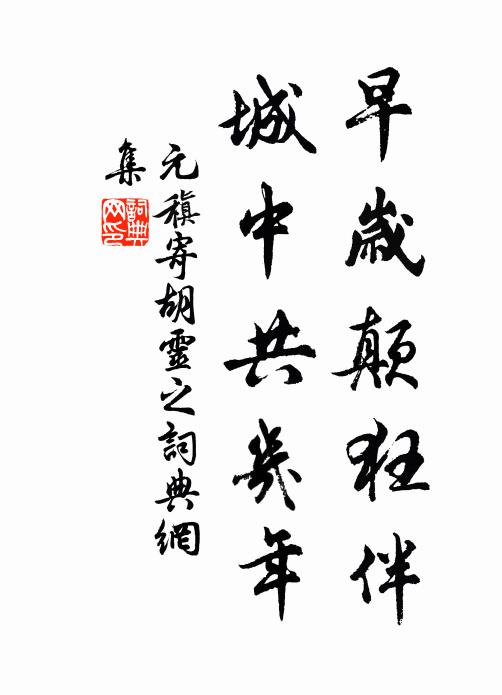 早歲顛狂伴
城中共幾年
元稹寄胡靈之詞典網
集
詞典
网印